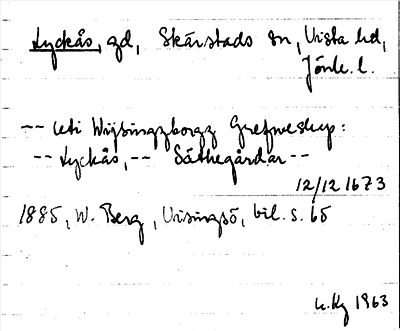 Lyckås, gd, Skärstads sn, Vista hd,
Jönk. l.
-- uti Wijsingzborgz Grefweskap:
-- Lyckås, -- Säthegårdar --
12/12 1673
1885, W. Berg, Visingsö, bil. s. 65
1963